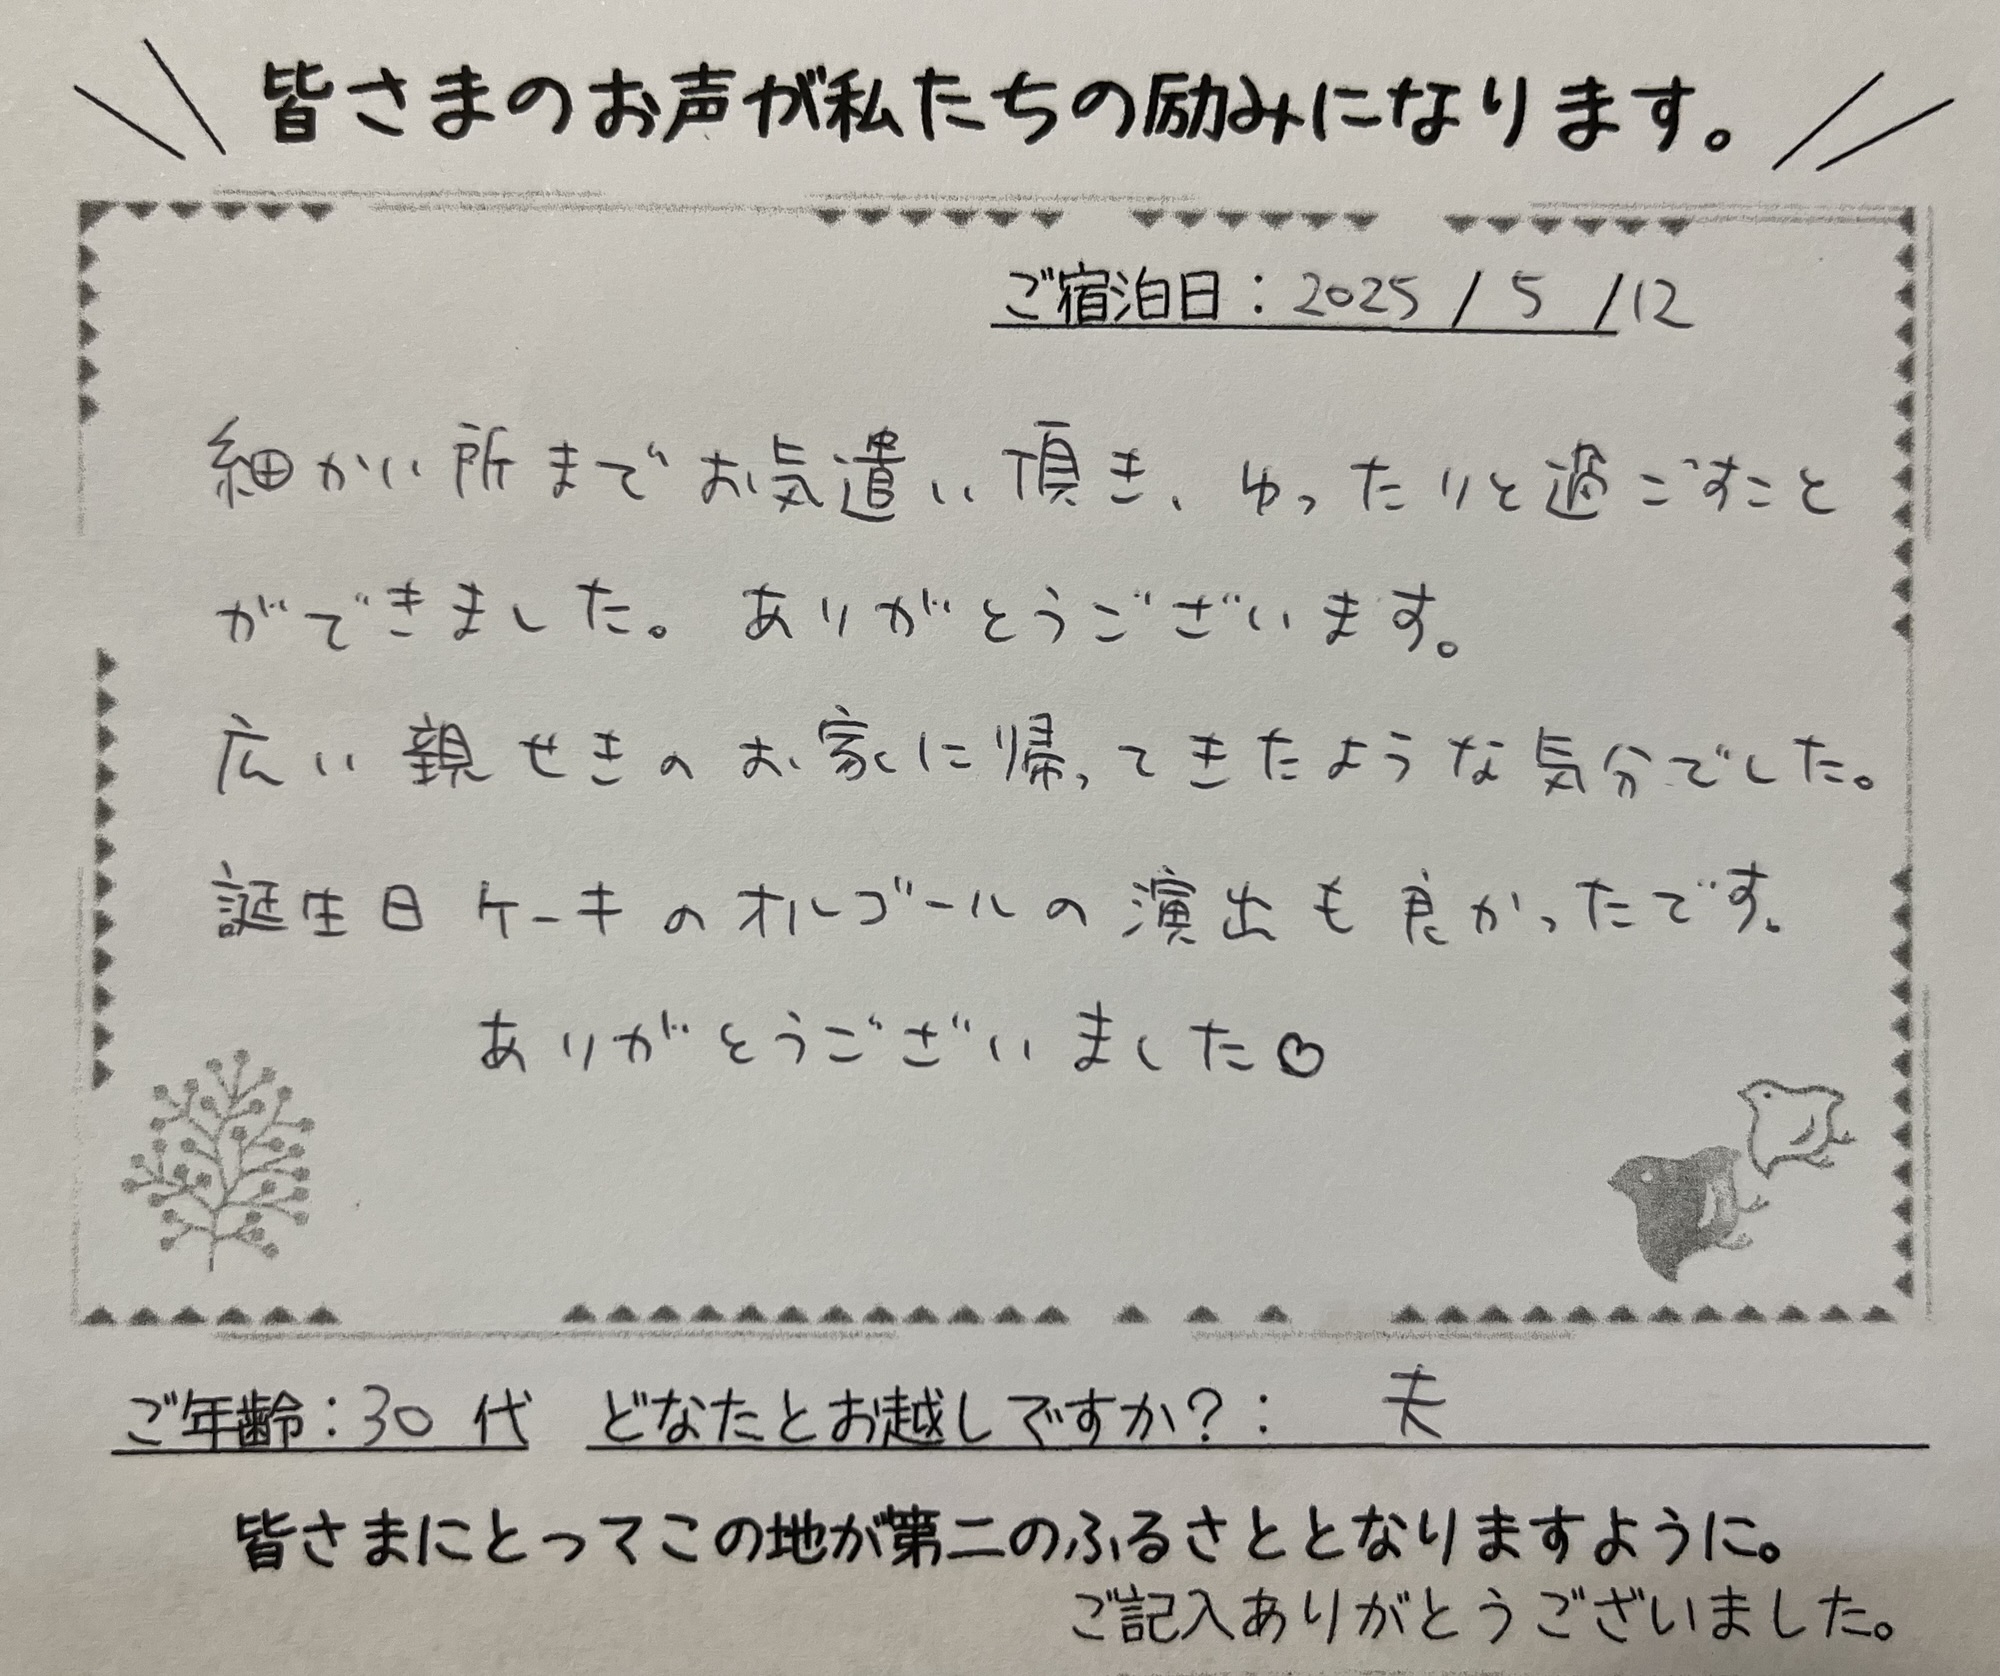 皆さまのお声が私たちの励みになります。
ご宿泊日：2025 / 5 /12
細かい所までお気遣い頂き、ゆったりと過ごすこと
ができました。ありがとうございます。
広い親せきのお家に帰ってきたような気分でした。
誕生日ケーキのオルゴールの演出も良かったです。
ありがとうございました♡
ご年齢：30 代 どなたとお越しですか？： 夫
皆さまにとってこの地が第二のふるさととなりますように。
ご記入ありがとうございました。